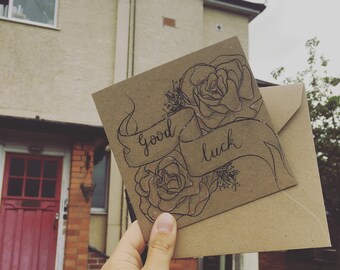 Good
luck